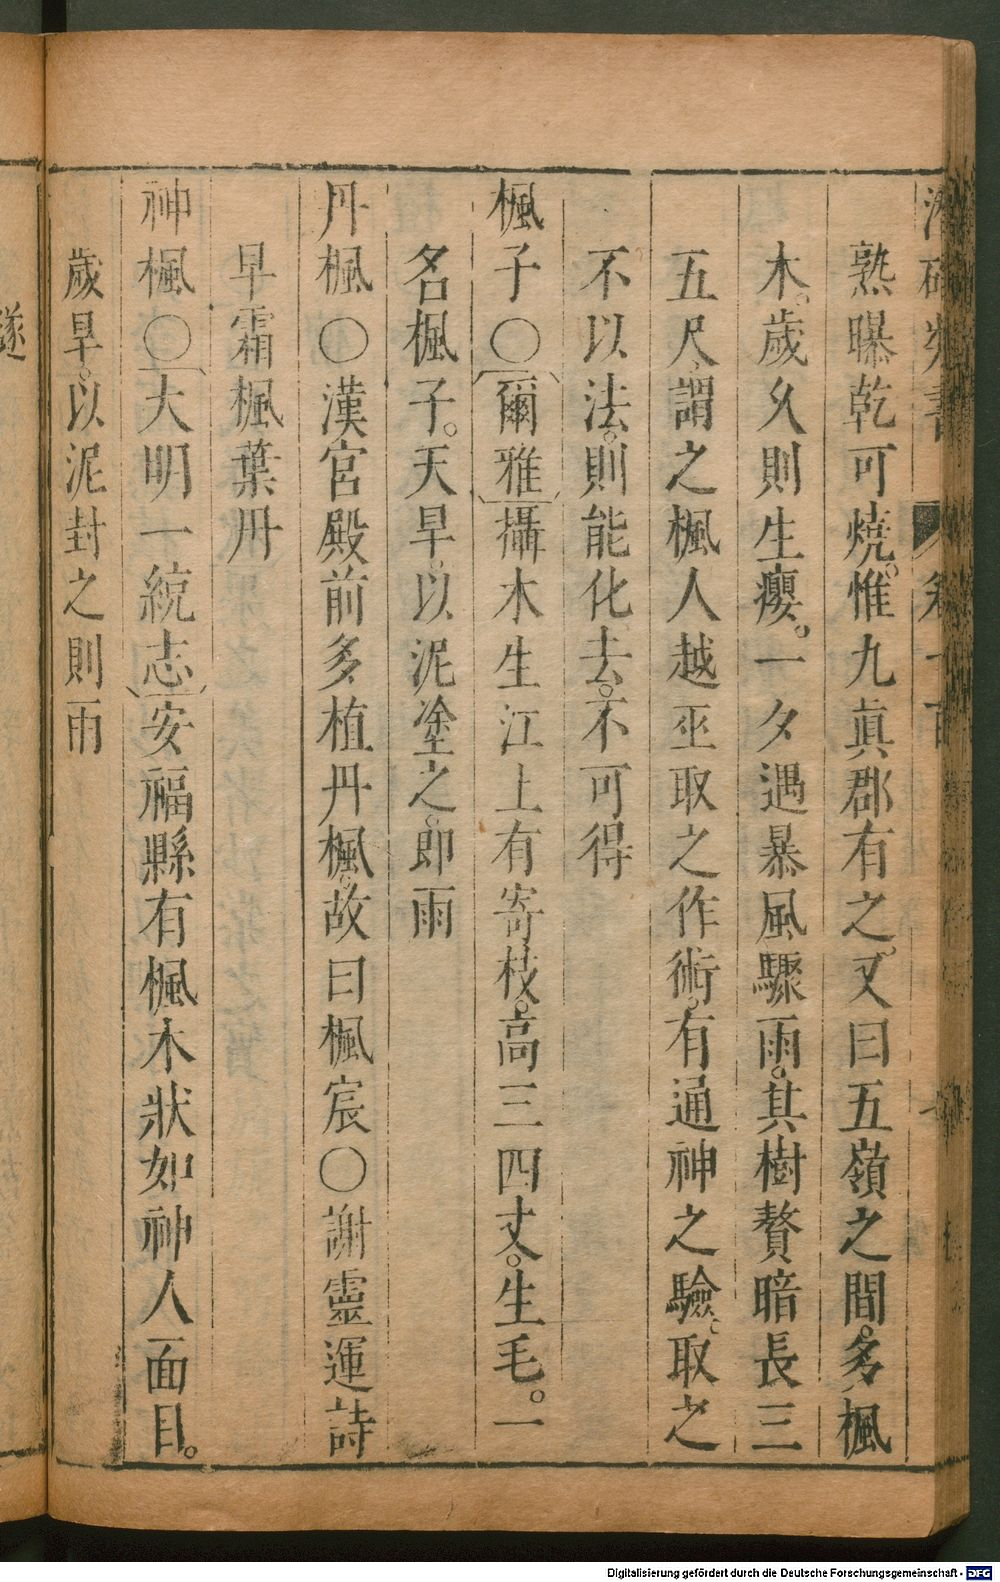 熟曝乾可燒。惟九眞郡有之。又曰五嶺之間。多楓
木。歲久則生癭。一夕遇暴風驟雨。其樹贅暗長三
五尺。謂之楓人越巫取之作術。有通神之驗。取之
不以法。則能化去。不可得
楓子〇爾雅攝木生江上有寄枝。高三四丈。生毛。一
名楓子。天旱。以泥塗之。即雨
丹楓〇漢宮殿前多植丹楓。故曰楓宸〇謝靈運詩
早霜楓葉丹
神楓〇大明一統志安福縣有楓木狀如神人面目。
歲旱。以泥封之則雨
Digitalisierung gefördert durch die Deutsche Forschungsgemeinschaft - DFG